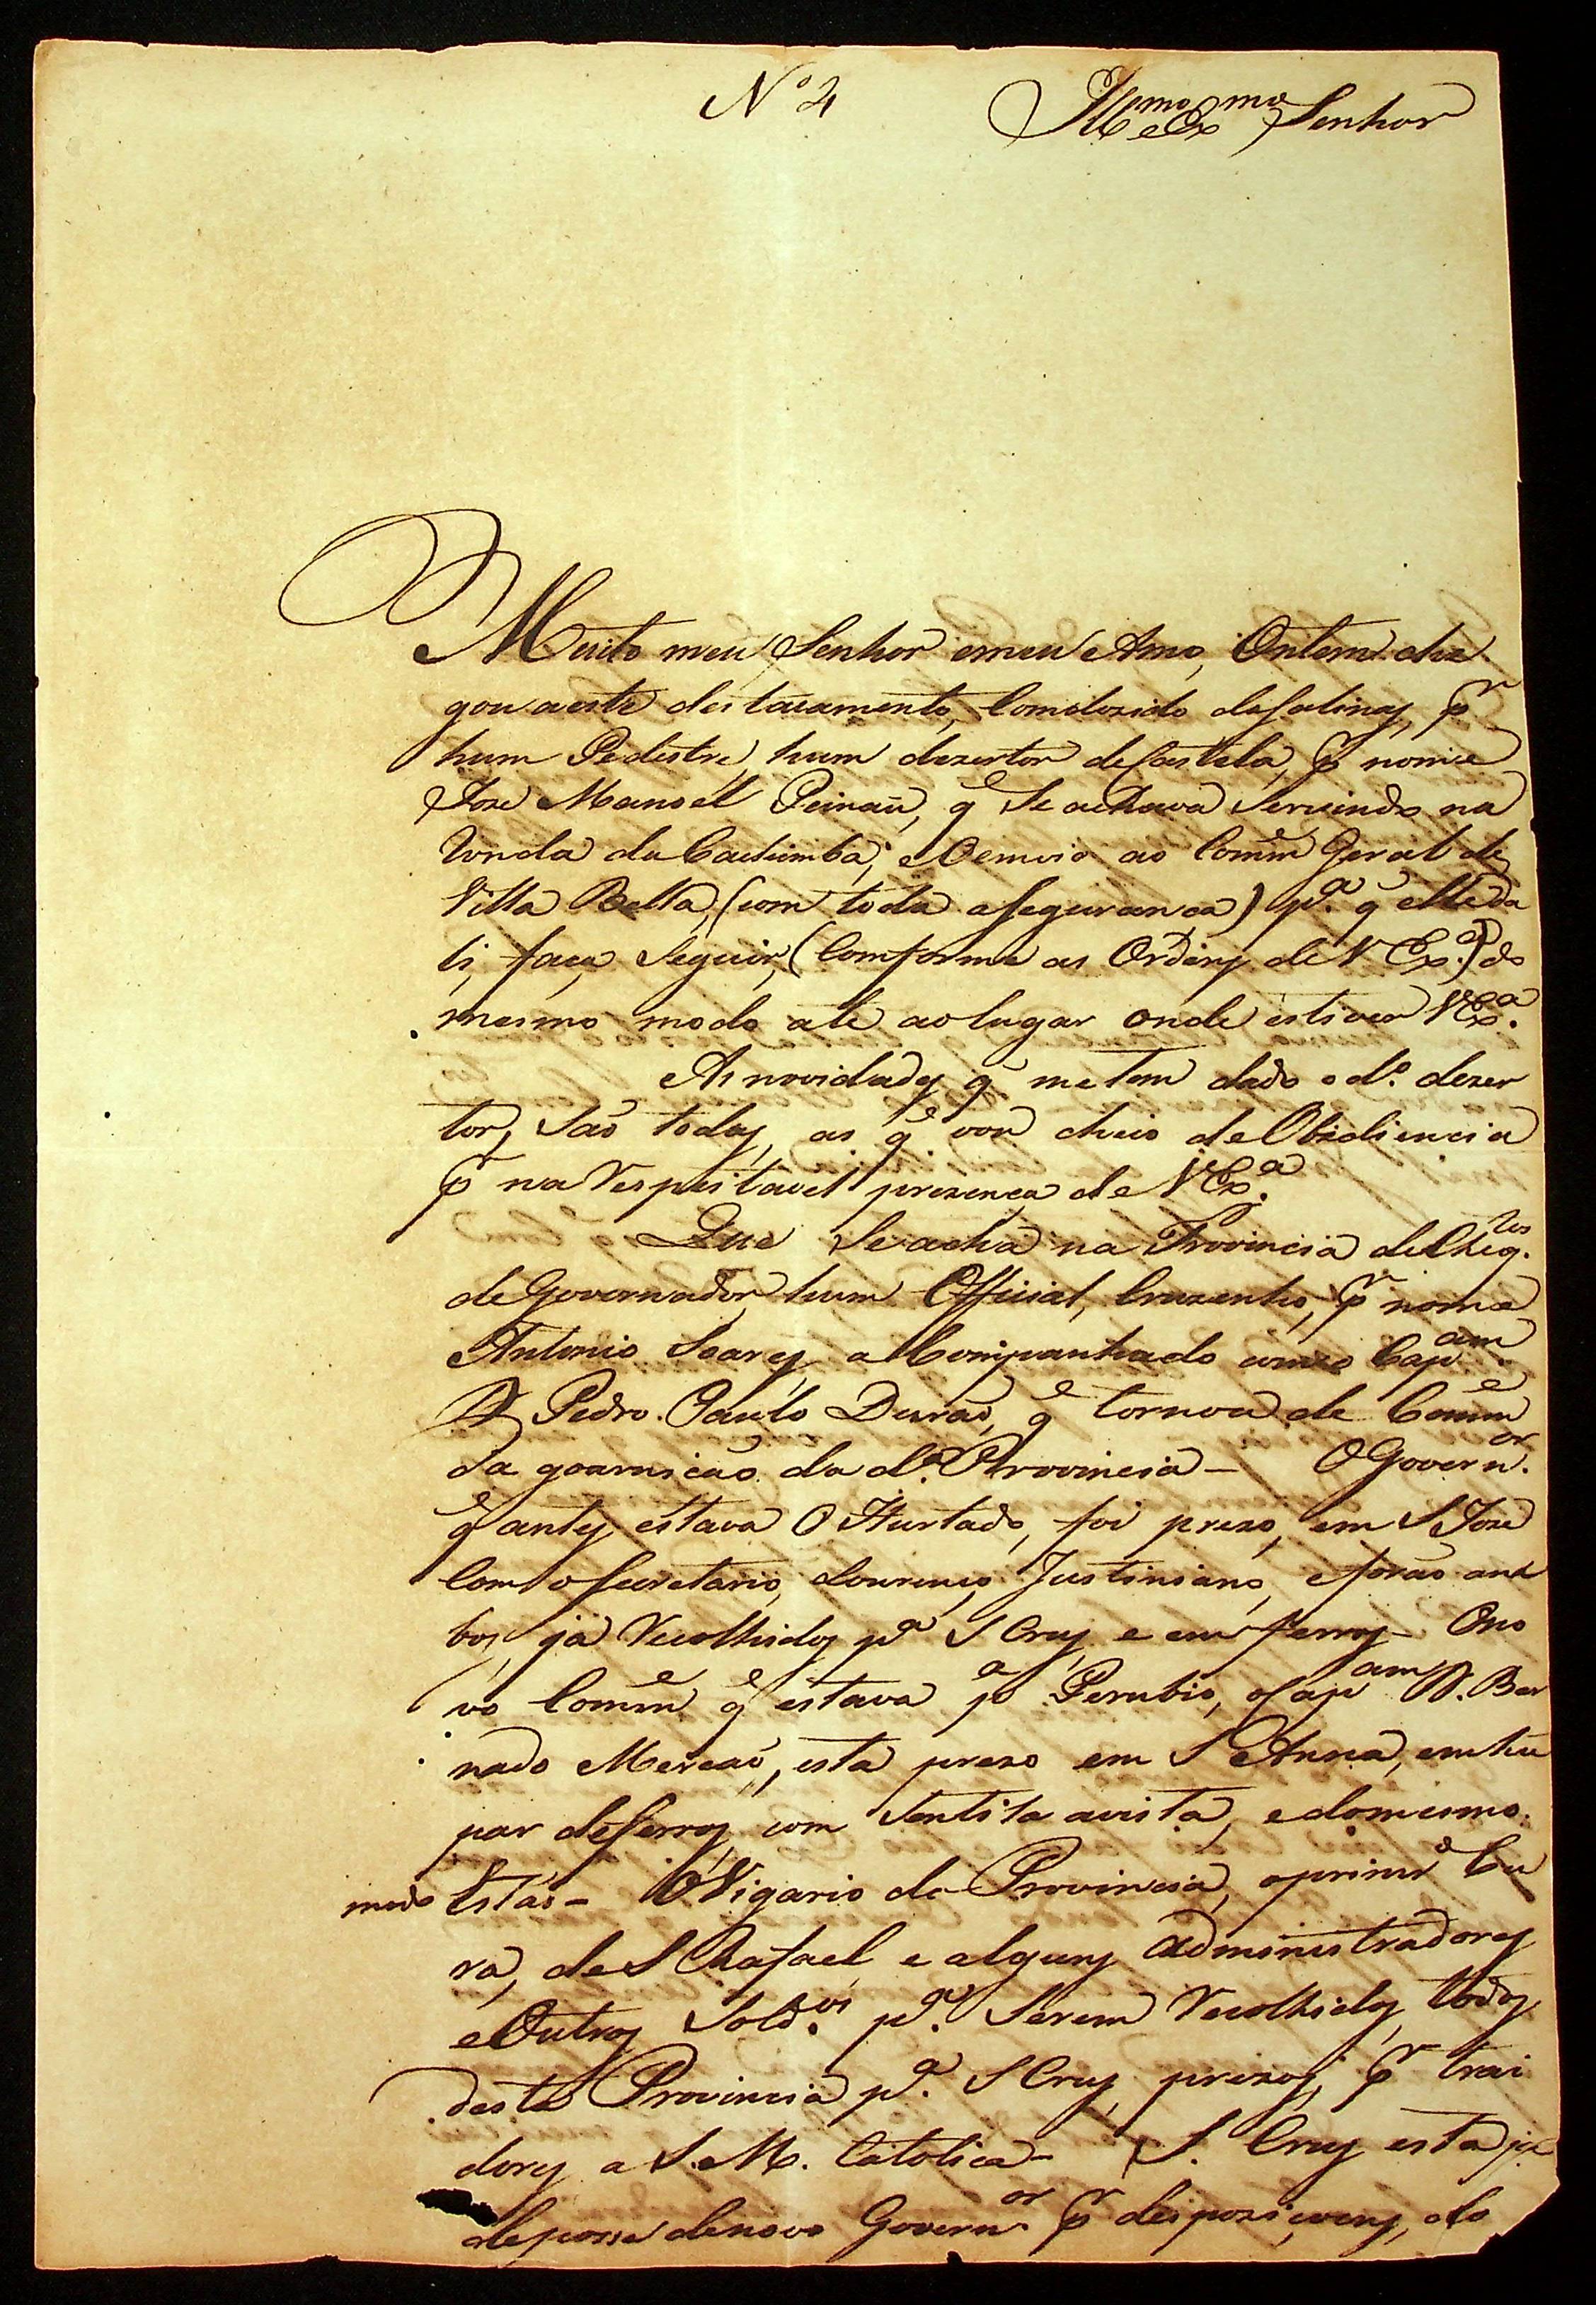 Nº 4 Ill^mo e Ex^mo Senhor
Muito meu Senhor emeu Amo, Ontem che
gou aeste destacamento, Comdozido deSalinas, p^r
hum Pedestre, hum dezertor deCastela, p^r nome
Joze Manoel Peinaũ, q^e Se achava Servindo na
Ronda da Cacimba; e Oemvio ao Com̃^e Geral de
Villa Bella, (com toda aSegurança) p.ª q^e elle da
li, faça Seguir, (Comforme as Ordens de V Ex.ª) do
mesmo modo ate aolugar onde estiver VEx.ª
As novidades q^e me tem dado o d.º dezer
tor, São todas, as q^e vou cheio de Obediencia
p^r na Respeitavel prezença de VEx.ª
Que Se acha na Provincia deCheq.^tos
deGovernador, hum Official, Cruzenho, p^r nome
Antonio Soares, aCompanhado como Cap^am.
D Pedro Paulo Durão, q^e tornou de Com̃^e
da goarnicão da d.ª Provincia - OGovern.^or
q^e antes, estava O Hurtado, foi prezo, em S Joze
Com oSecretario, Lourenço Justiniano, eforão am
bos, já Recolhidos p.ª S Crus, e em ferros - Ono
vo Com̃^e q^e estava p^a Perubio, oCap^am D. Ber
nado Mercaõ, esta prezo em S Anna, em hũ
par deferros, com Sentila avista, edomesmo
modo Estão - OVigario da Provincia, oprimr^o Cu
ra, de S Rafael, e alguns administradores
eOutros Sold.^os p.ª Serem Recolhidos, todos,
desta Provincia p.ª S Crus, prezos, p^r trai
dores a S. M. Catolica - S. Crus esta ja
deposse denovo Govern^or. p^r despoziçoens, do